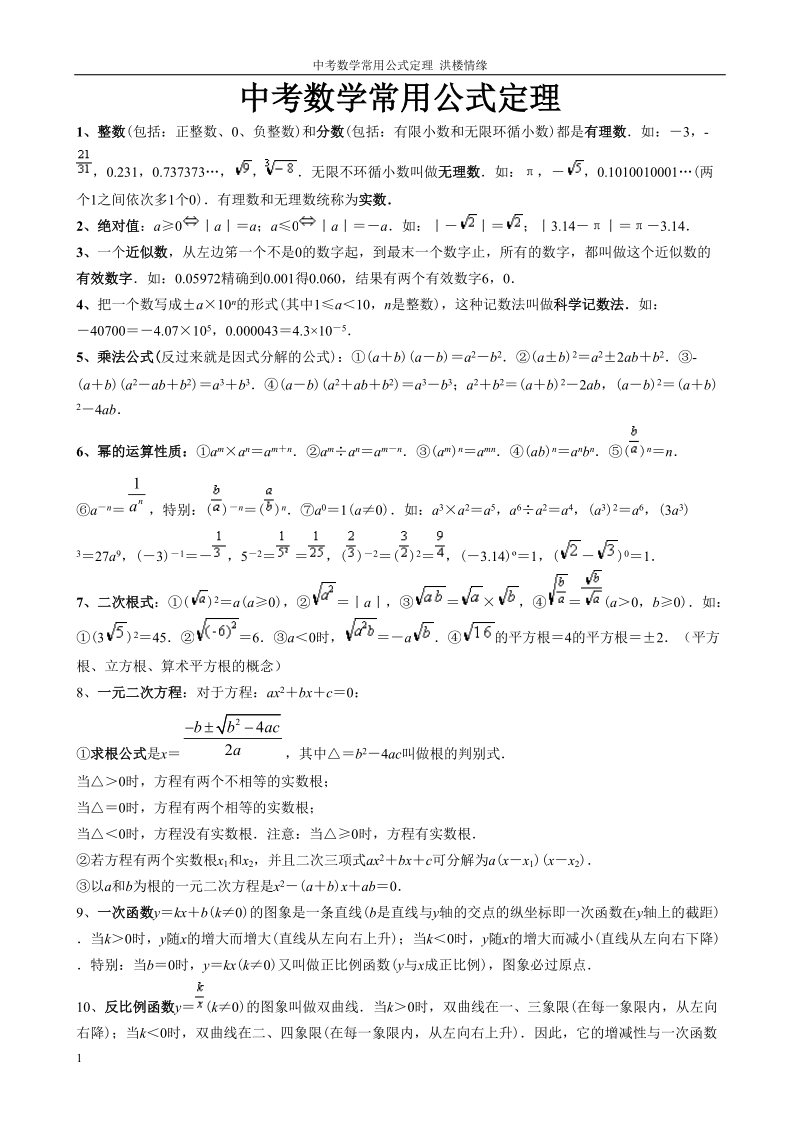 中考数学常用公式定理 洪楼情缘
中考数学常用公式定理
1、整数(包括：正整数、0、负整数)和分数(包括：有限小数和无限环循小数)都是有理数．如：－3，-
21/31，0.231，0.737373…，√9，∛－8．无限不环循小数叫做无理数．如：π，－√5，0.1010010001…(两
个1之间依次多1个0)．有理数和无理数统称为实数．
2、绝对值：a≥0⇔丨a丨＝a；a≤0⇔丨a丨＝－a．如：丨－√2丨＝√2；丨3.14－π丨＝π－3.14．
3、一个近似数，从左边笫一个不是0的数字起，到最末一个数字止，所有的数字，都叫做这个近似数的
有效数字．如：0.05972精确到0.001得0.060，结果有两个有效数字6，0．
4、把一个数写成±a×10ⁿ的形式(其中1≤a＜10，n是整数)，这种记数法叫做科学记数法．如：
－40700＝－4.07×10⁵，0.000043＝4.3×10⁻⁵．
5、乘法公式(反过来就是因式分解的公式)：①(a＋b)(a－b)＝a²－b²．②(a±b)²＝a²±2ab＋b²．③-
(a＋b)(a²－ab＋b²)＝a³＋b³．④(a－b)(a²＋ab＋b²)＝a³－b³；a²＋b²＝(a＋b)²－2ab，(a－b)²＝(a＋b)
²－4ab．
6、幂的运算性质：①aᵐ×aⁿ＝aᵐ⁺ⁿ．②aᵐ÷aⁿ＝aᵐ⁻ⁿ．③(aᵐ)ⁿ＝aᵐⁿ．④(ab)ⁿ＝aⁿbⁿ．⑤(b/a)ⁿ＝n．
⑥a⁻ⁿ＝1/aⁿ，特别：(b/a)⁻ⁿ＝(a/b)ⁿ．⑦a⁰＝1(a≠0)．如：a³×a²＝a⁵，a⁶÷a²＝a⁴，(a³)²＝a⁶，(3a³)
³＝27a⁹，(－3)⁻¹＝－1/3，5⁻²＝1/5²＝1/25，(2/3)⁻²＝(3/2)²＝9/4，(－3.14)º＝1，(√2－√3)⁰＝1．
7、二次根式：①(√a)²＝a(a≥0)，②√a²＝丨a丨，③√ab＝√a×√b，④√(b/a)＝√b/√a(a＞0，b≥0)．如：
①(3√5)²＝45．②√(-6)²＝6．③a＜0时，√a²b＝－a√b．④√16的平方根＝4的平方根＝±2．（平方
根、立方根、算术平方根的概念）
8、一元二次方程：对于方程：ax²＋bx＋c＝0：
①求根公式是x＝(−b±√(b²−4ac))/2a，其中△＝b²－4ac叫做根的判别式．
当△＞0时，方程有两个不相等的实数根；
当△＝0时，方程有两个相等的实数根；
当△＜0时，方程没有实数根．注意：当△≥0时，方程有实数根．
②若方程有两个实数根x₁和x₂，并且二次三项式ax²＋bx＋c可分解为a(x－x₁)(x－x₂)．
③以a和b为根的一元二次方程是x²－(a＋b)x＋ab＝0．
9、一次函数y＝kx＋b(k≠0)的图象是一条直线(b是直线与y轴的交点的纵坐标即一次函数在y轴上的截距)
．当k＞0时，y随x的增大而增大(直线从左向右上升)；当k＜0时，y随x的增大而减小(直线从左向右下降)
．特别：当b＝0时，y＝kx(k≠0)又叫做正比例函数(y与x成正比例)，图象必过原点．
10、反比例函数y＝k/x(k≠0)的图象叫做双曲线．当k＞0时，双曲线在一、三象限(在每一象限内，从左向
右降)；当k＜0时，双曲线在二、四象限(在每一象限内，从左向右上升)．因此，它的增减性与一次函数
1